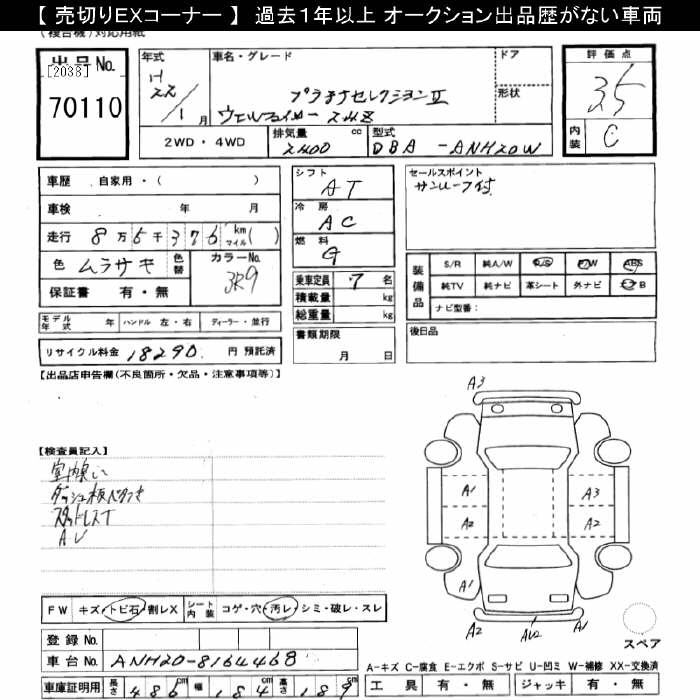 【 売切りEXコーナー 】 過去1年以上 オークション出品歴がない車両
(複合機)対応用紙
出品No.
[2038]
70110
年式
H
22
1月
車名・グレード
プラチナセレクションⅡ
ヴェルファイヤー 2.4Z
ドア
形状
評価点
3.5
内装 C
2WD・4WD
排気量 cc
2400
型式
DBA -ANH20W
車歴 自家用・( )
車検 年 月
走行 8万5千376 km マイル( )
色 ムラサキ 色替 カラーNo.
3R9
保証書 有・無
シフト
AT
冷房
AC
燃料
G
乗車定員 7名
積載量 kg
総重量 kg
書類期限
月 日
セールスポイント
サンルーフ付
装備品
S/R 純A/W P/S P/W ABS
純TV 純ナビ 革シート 外ナビ エアB
ナビ型番:
後日品
モデル年式 年 ハンドル 左・右 ディーラー・並行
リサイクル料金 18290. 円 預託済
【出品店申告欄(不良箇所・欠品・注意事項等)】
【検査員記入】
ダッシュ板ベタつき
スタッドレスT
FW キズ・トビ石・割レX
シート内装 コゲ・穴・汚レ・シミ・破レ・スレ
登録No.
車台No. ANH20-8164468
車庫証明用 長さ 486cm 幅 184 高さ 189
A3
A1
A3
A2
A2
A1
A2
AU2
A1
スペア
A-キズ C-腐食 E-エクボ S-サビ U-凹ミ W-補修 XX-交換済
工具 有・無 ジャッキ 有・無